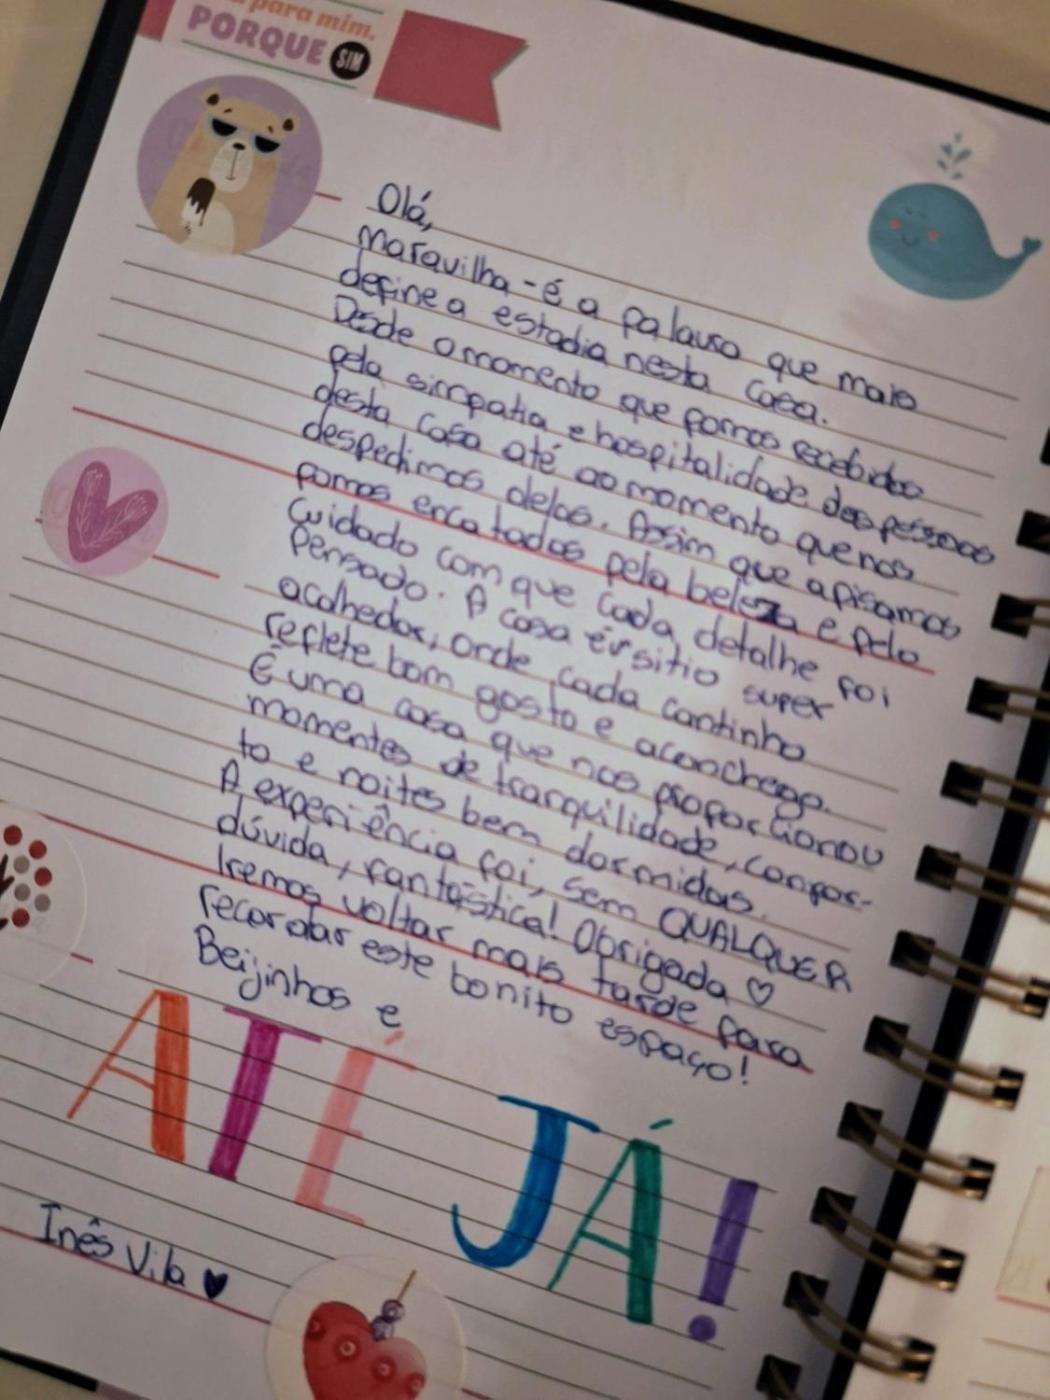 para mim,
PORQUE SIM
Olá,
Maravilha - é a palavra que mais
define a estadia nesta Casa.
Desde o momento que fomos recebidos
pela simpatia e hospitalidade das pessoas
desta Casa até ao momento que nos
despedimos delas. Assim que a pisamos
fomos encatados pela beleza e pelo
Cuidado com que cada detalhe foi
Pensado. A casa é sitio super
acolhedor, onde cada cantinho
reflete bom gosto e aconchego.
É uma casa que nos proporcionou
momentes de tranquilidade, confor-
to e noites bem dormidas.
A experiência foi, sem QUALQUER
dúvida, fantástica! Obrigada ♡
Iremos voltar mais tarde para
recordar este bonito espaço!
Beijinhos e
ATÉ JÁ!
Inês Vila ♥